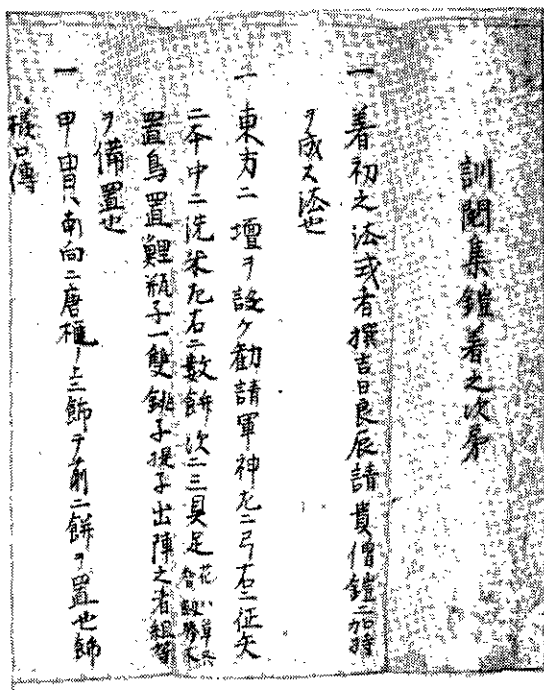 訓閲集鎧着之次第
一 着初之法式者撰吉日良辰請貴僧鎧ニ加持
ヲ成ス法也
一 東方ニ壇ヲ設ケ勧請軍神左ニ弓右ニ征矢
二本中ニ洗米左右ニ数餅次ニ三具足
置鳥置鯉瓶子一雙銚子提子出陣之肴組等
ヲ備置也
一 甲冑ハ南向ニ唐櫃ノ上ニ飾ヲ前ニ餅ヲ置也飾
様口傳